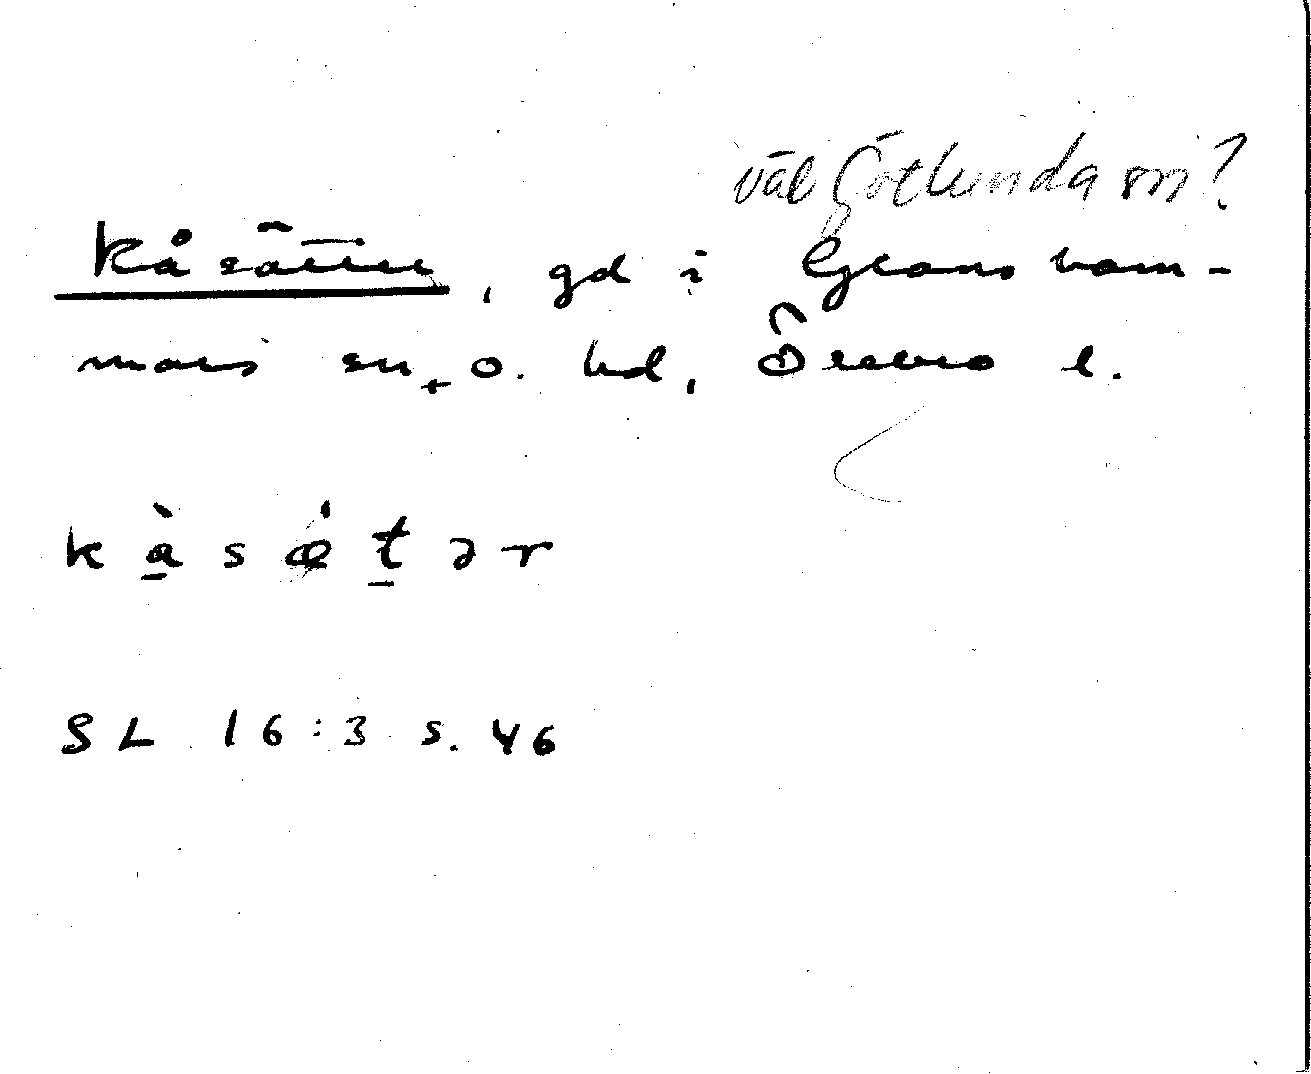 väl Götlunda sn?
Kåsätter, gd i Glans ham-
mars sn + o. hd, Örebro l.
k à s ǽ t ə r
SL 16:3 s. 46